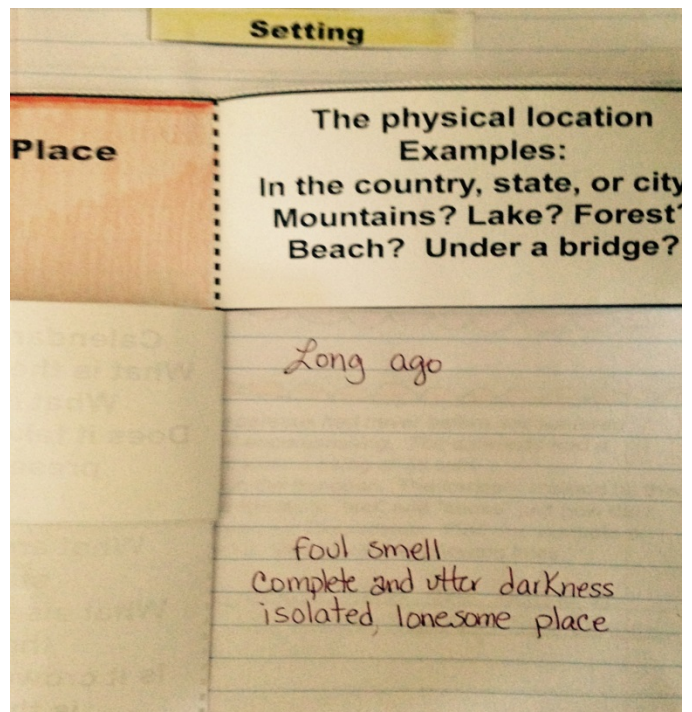 Setting
Place
The physical location
Examples:
In the country, state, or city
Mountains? Lake? Forest?
Beach? Under a bridge?
Long ago
foul smell
Complete and utter darkness
isolated, lonesome place